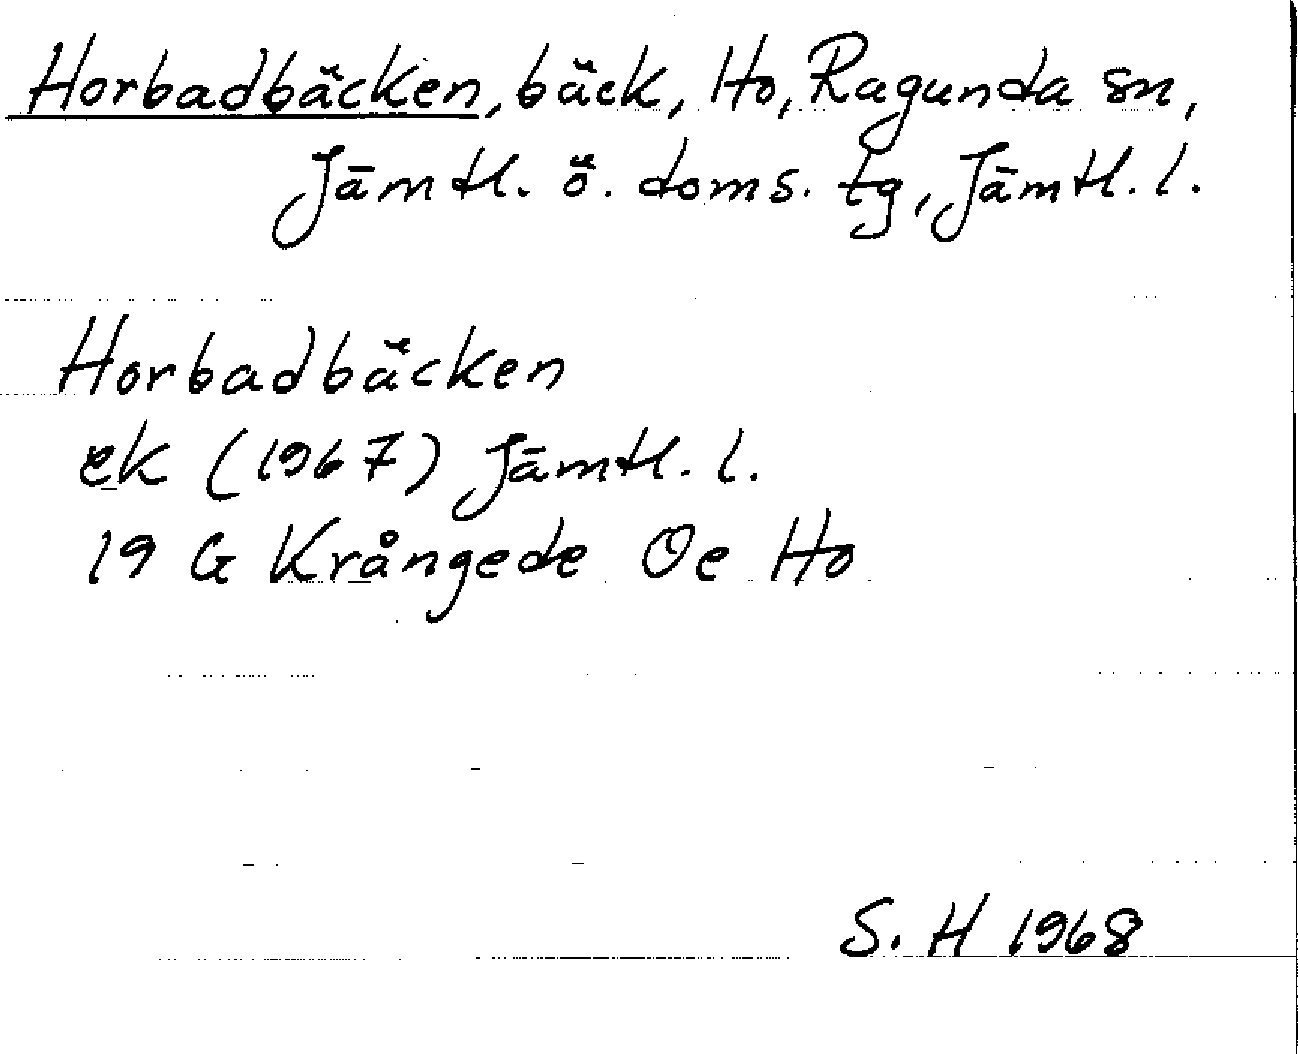 Horbadbäcken, bäck, Ho, Ragunda sn,
Jämtl. ö. doms. tg, Jämtl. l.
Horbadbäcken
ek (1967) Jämtl. l.
19 G Krångede Oe Ho
S. H 1968